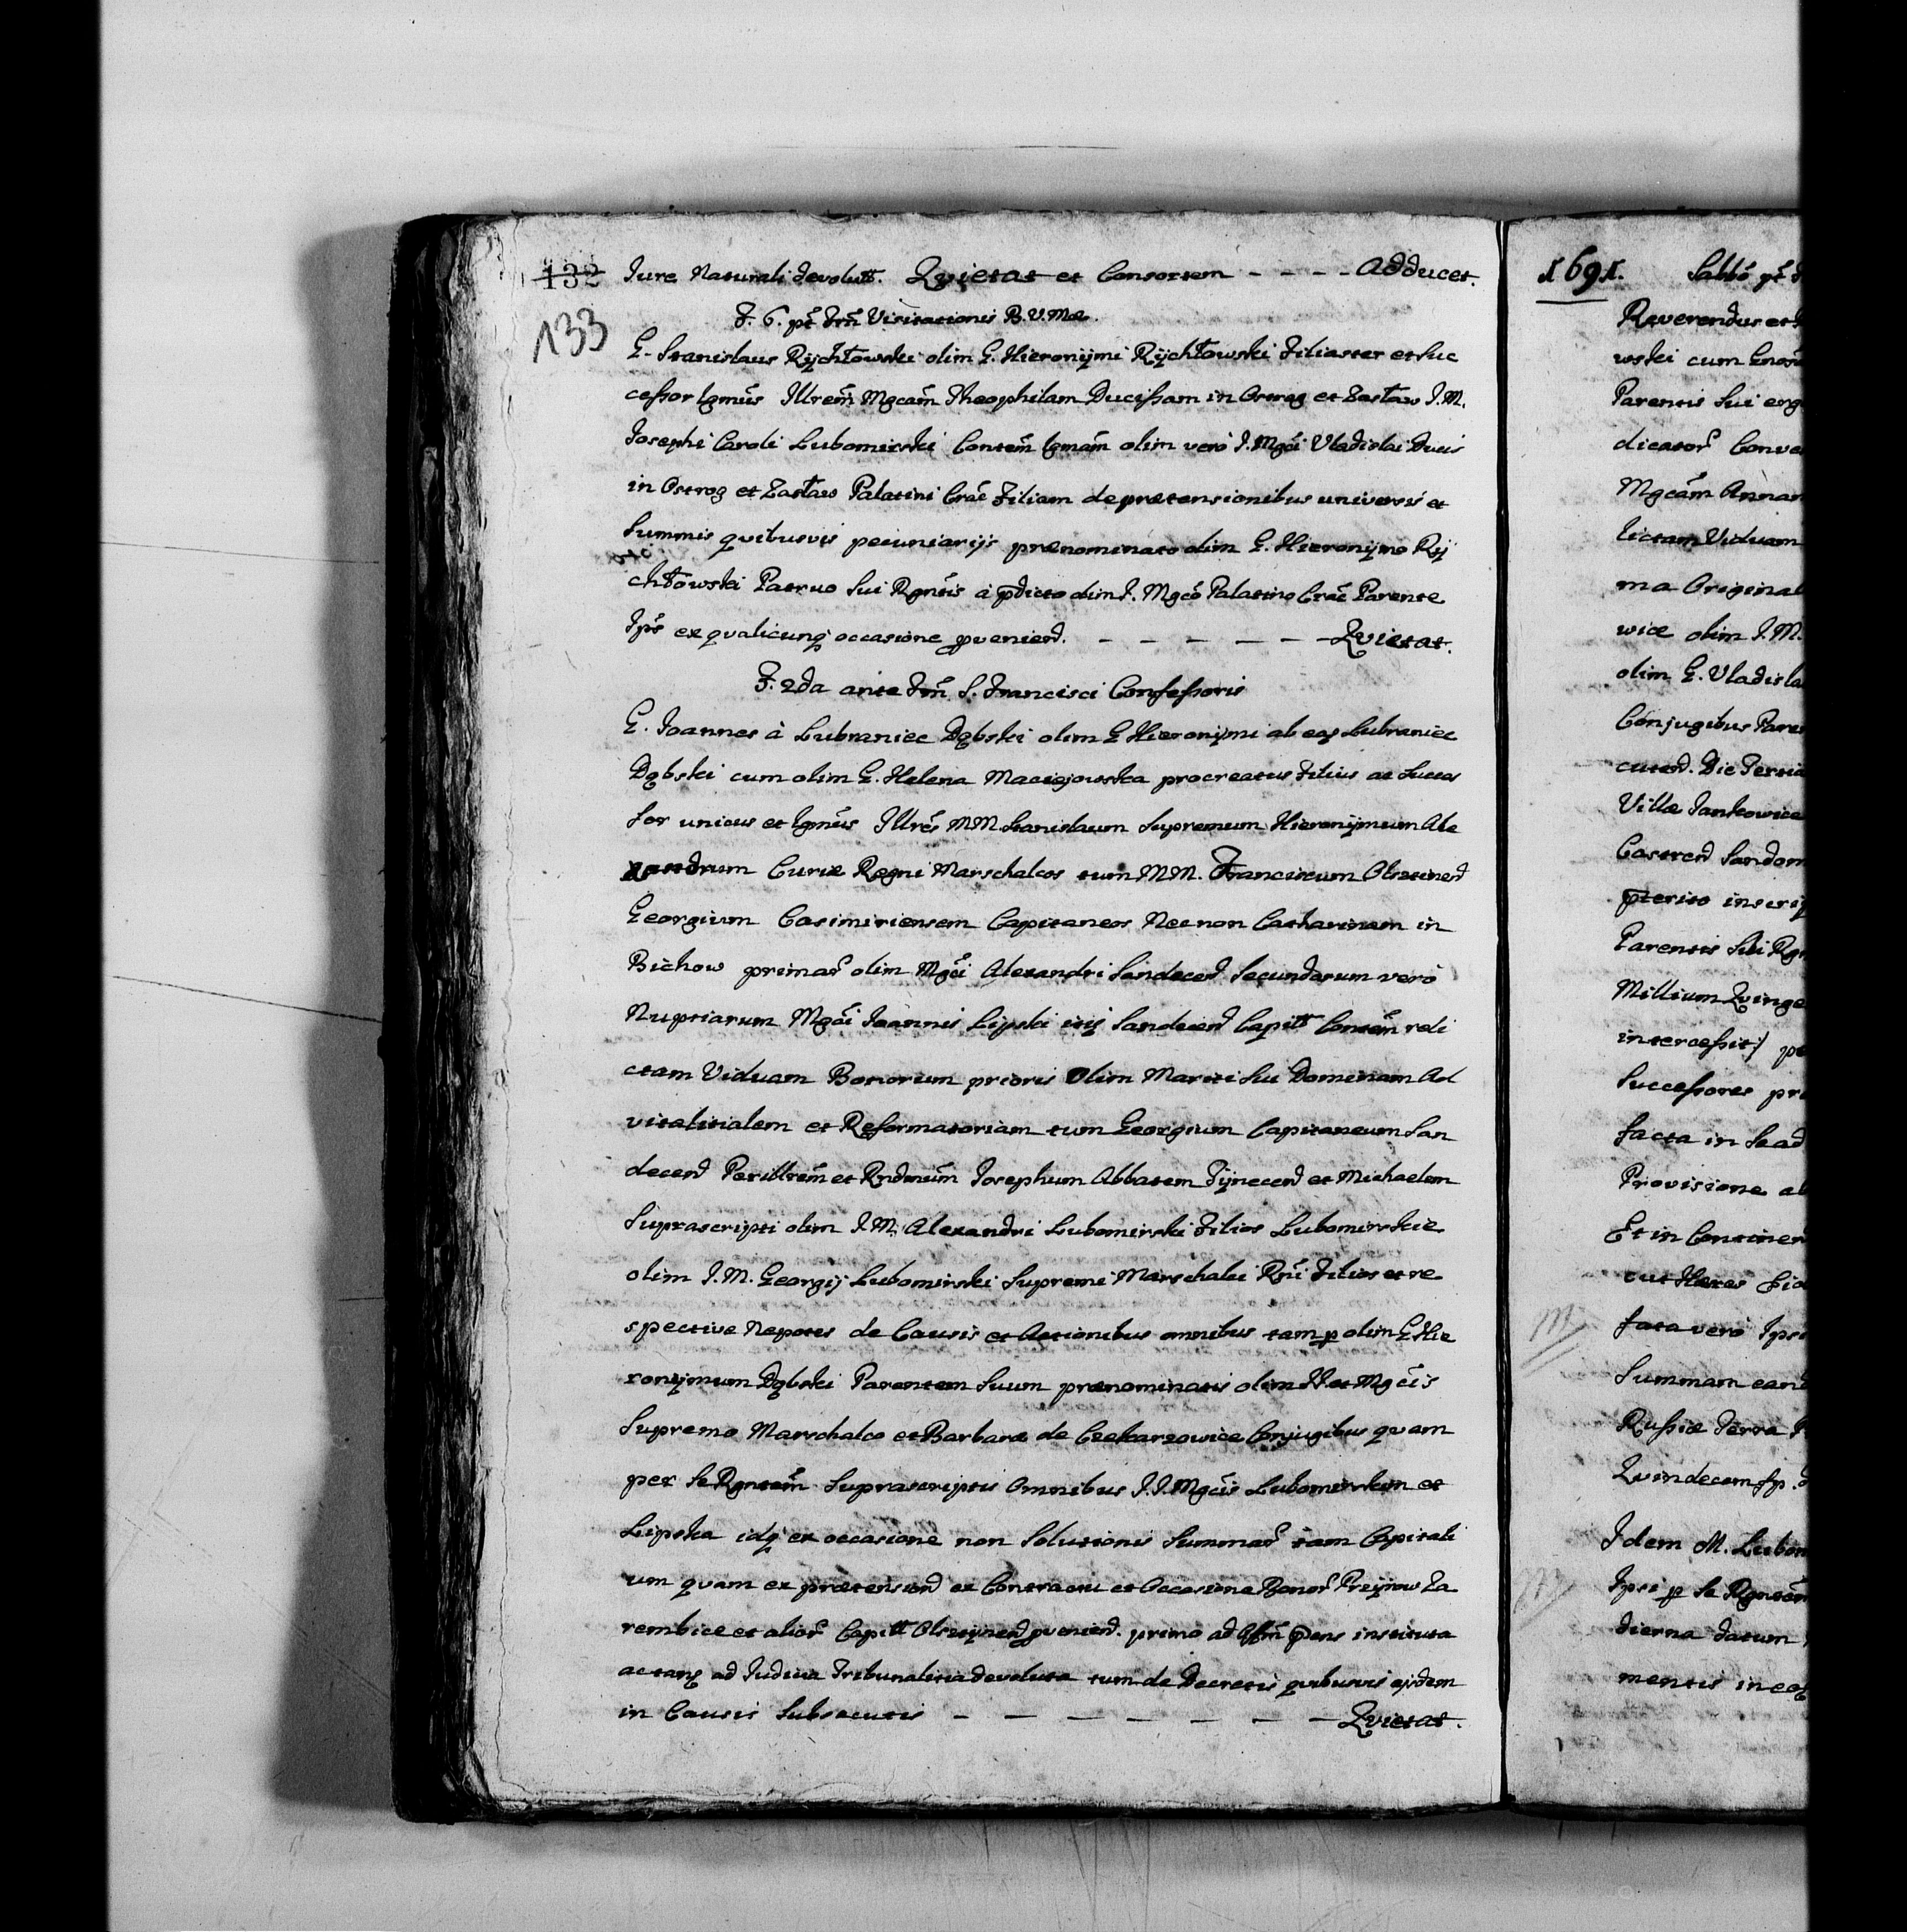 132 Jure Naturali devolutt. Qvietat et Consortem - - - - Adducet.
133
F. 6. pt Frm Visitationis B. V. Mæ.
G. Stanislaus Rÿchłowski olim G. Hieronÿmi Rÿchłowski Filiaster et Suc
cessor Igmús Illrem Mgcam Theophilam Ducissam in Ostrog et Zasław J. M.
Josephi Caroli Lubomirski Contem Igmam olim verò J. Mgci Vladislai Ducis
in Ostrog et Zasław Palatini Crac Filiam de prætensionibus universis et
Summis qvibusvis pecuniarijs prænominato olim G. Hieronÿmo Rÿ
chłowski Patruo Sui Rgntis à pdicto olim J. Mgco Palatino Crac Parente
Ips ex qvalicunq occasione pvenied. - - - - - Qvietat.
F. 2da ante Frm S. Francisci Confessoris
G. Joannes à Lubraniec Dąbski olim G Hieronÿmi ab eaq Lubraniec
Dąbski cum olim G. Helena Maciejowska procreatus Filius ac Succes
sor unicus et Igmús Illres MM Stanislaum Supremum Hieronÿmum Ale
xandrum Curiæ Regni Marschalcos tum MM. Franciscum Olsztined
Georgium Casimiriensem Capitaneos Necnon Catharinam in
Bichow primar olim Mgci Alexandri Sandeced Secundarum verò
Nuptiarum Mgci Joannis Lipski itÿ Sandeced Capitt Contem reli
ctam Viduam Bonorum prioris Olim Mariti Sui Dominam Ad
vitalitialem et Reformatoriam tum Georgium Capitaneum San
deced Perillrem et Rndmum Josephum Abbatem Tÿneced et Michaelem
Suprascripti olim J. M. Alexandri Lubomirski Filios Lubomirskie
olim J. M. Georgij Lubomirski Supremi Marschalci Rni Filios et re
spective Nepotes de Causis et Actionibus omnibus tam p olim G Hie
ronÿmum Dąbski Parentem Suum prænominatis olim et Mgcis
Supremo Marschalco et Barbaræ de Czekarzowice Conjugibus qvam
per Se Rgntem Suprascriptis Omnibus J. J. Mgcis Lubomirskim et
Lipska idq ex occasione non Solutionis Summar tam Capitali
um qvam ex prætensiond ex Contractu et Occasione Bonor Przÿrow Za
rembice et alior Capitt Olsztÿned pvenied. primo ad pens instituta
actanq ad Judicia Tribunalitia devoluta tum de Decretis qvibusvis ejsdem
in Causis Subsecutis - - - - - - - Qvietat.
1691. Sabbo pt
Reverendus et
wski cum Gnosm
Parentis Sui erg
dicator Conve
Mgcam Annam
lictam Viduam
ma Original
wice olim J. M.
olim G. Vladisla
Conjugibus Paren
cuted. Die Tertia
Villæ Jankowice
Castred Sandom
pterito inscrip
Parentis Sui Rgn
Millium Qvinge
intercessit) pe
Successores pr
facta in Se ad
Provisione ab
Et in Contined
cut Hæres
fata verò Ipse
Summam eand
Russiæ Terra
Qvindecem fp.
Idem M. Lubom
Ipsi p Se Rgntem
dierna datum
mentis in eoq